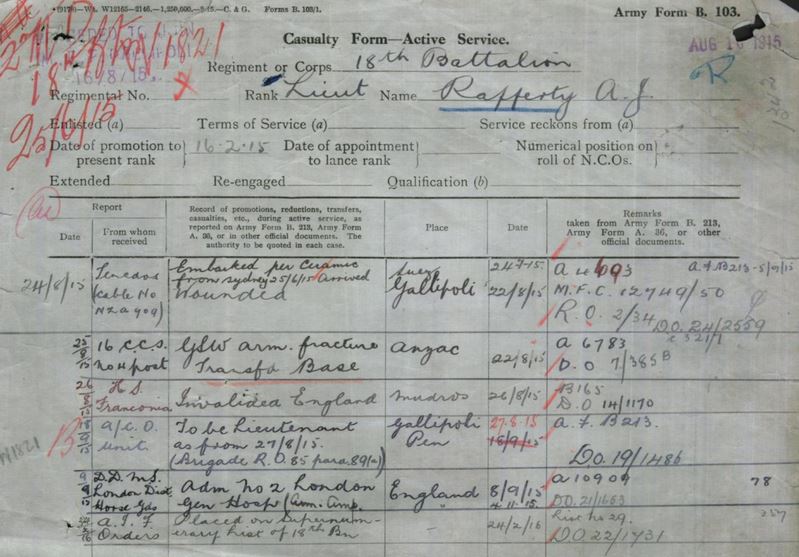 (9179)—Wt. W12165—2146.—1,250,000.—2-15.—C. & G. Forms B. 103/1.
Army Form B. 103.
Casualty Form—Active Service.
AUG 16 1915
16/8/15
18th Bn 1821
25/6/15
R
Regiment or Corps 18th Battalion
Regimental No. X Rank Lieut Name Rafferty A. J.
Enlisted (a) Terms of Service (a) Service reckons from (a)
Date of promotion to present rank } 16-2-15 Date of appointment to lance rank } Numerical position on roll of N.C.Os. }
Extended Re-engaged Qualification (b)
Report
Date
From whom received
Record of promotions, reductions, transfers, casualties, etc., during active service, as reported on Army Form B. 213, Army Form A. 36, or in other official documents. The authority to be quoted in each case.
Place
Date
Remarks
taken from Army Form B. 213, Army Form A. 36, or other official documents.
Embarked per Ceramic from Sydney 25/6/15 arrived Suez 24-7-15
24/8/15 Tenedos (cable No NZA 909) Wounded Gallipoli 22/8/15
A 4693 A.F.B213-5/9/15
M.F.C. 12749/50
R.O. 2/34 D.O. 24/2559
25/8/15 16 C.C.S. No 4 post GSW arm. fracture Transfd Base Anzac 22/8/15
A 6783
D.O 7/385 B
26/8/15 H S Franconia Invalided England Mudros 26/8/15
B165
D.O 14/1170
18/9/15 A/C.O. Unit To be Lieutenant as from 27/8/15. (Brigade R.O. 85 para. 89(a)) Gallipoli Pen 27.8.15 18/9/15
A. F. B213.
DO. 19/1486
B
W1821
9/9/15 D.D.M.S. London Dist Horse Gds Adm No 2 London Gen Hosp (Arm. Amp. England 8/9/15 4-11-15.
A 10909 78
DO. 21/1663
A. I. F Orders Placed on Supernumerary list of 18th Bn - 24/2/16
List No 29. 257
DO 22/1731